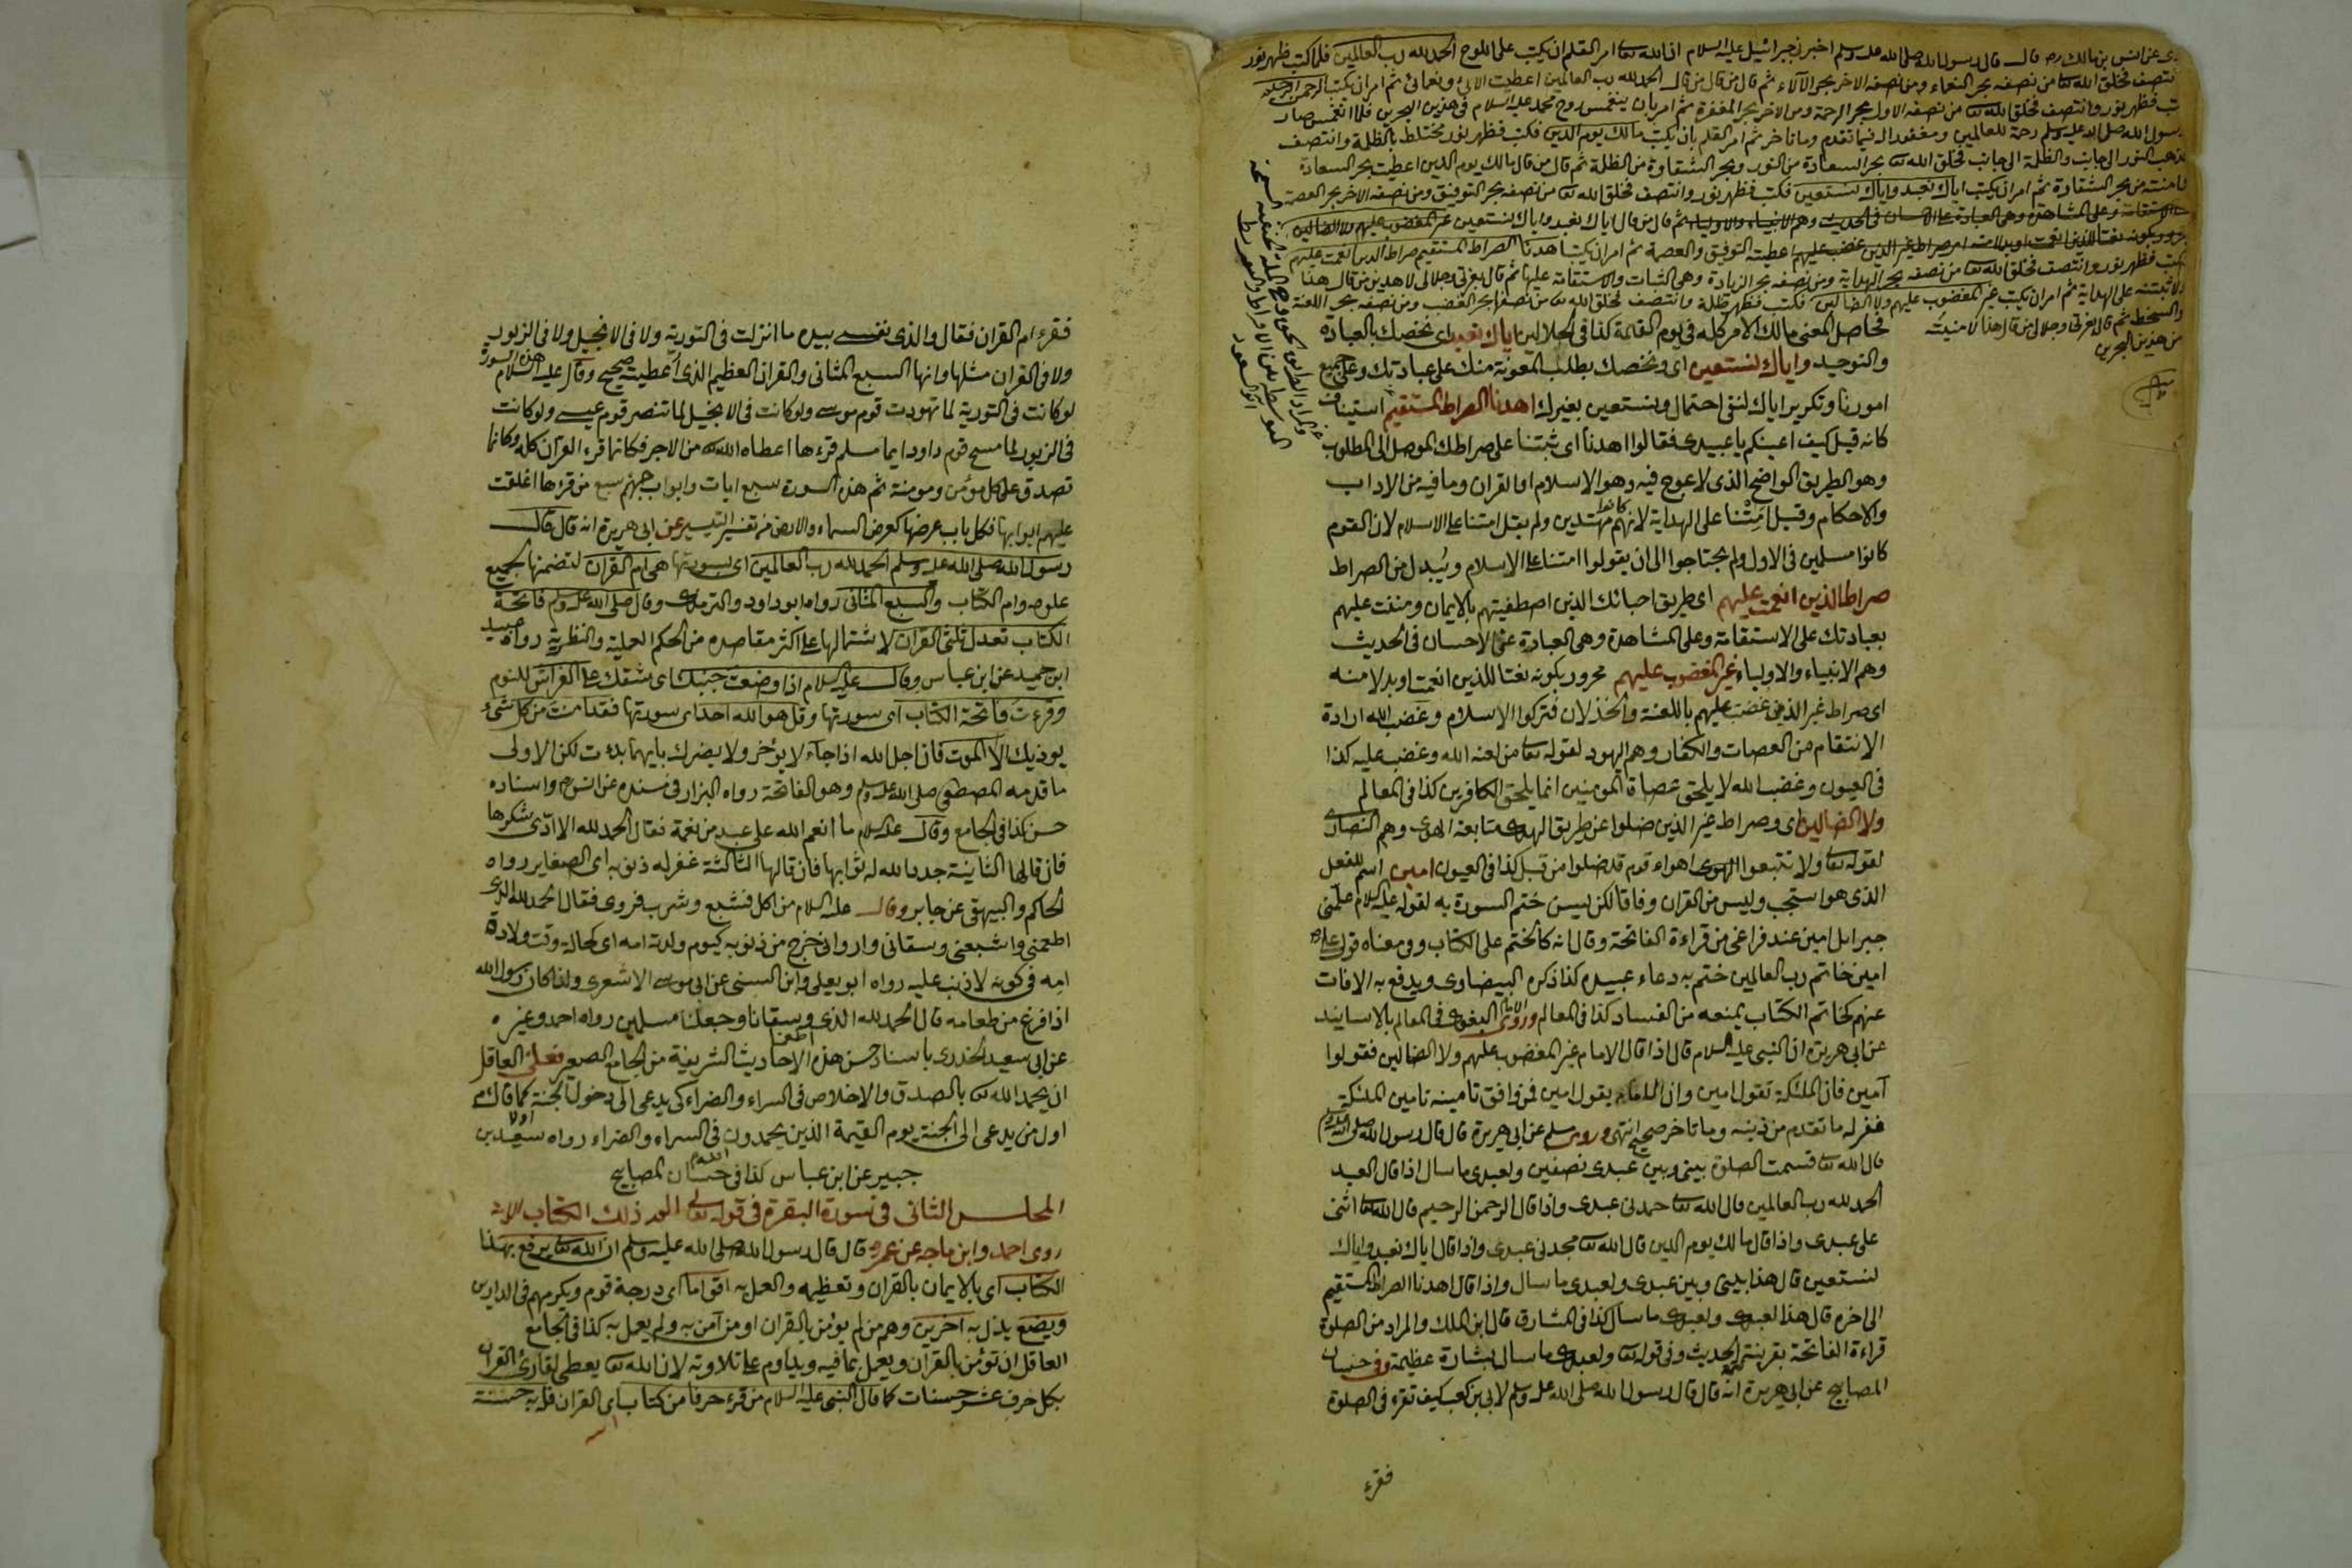 عن انس بن مالك رضه قال قال رسول الله صلى الله عليه وسلم اخبرني جبرائيل عليه السلام ان الله تعا امر القلم ان يكتب على اللوح الحمد لله رب العالمين فلما كتب ظهر نور
فخلق الله تعا من نصفه بحر النعماء ومن نصفه الاخر بحر الآلاء ثم قال من قال الحمد لله رب العالمين اعطيت الائي ونعمائي ثم امر ان يكتب الرحمن الرحيم
فظهر نور وانتصف فخلق الله تعا من نصفه الاول بحر الرحمة ومن الاخر بحر المغفرة ثم امر بان ينغمس روح محمد عليه السلام في هذين البحرين فلما انغمس صار
رسول الله صلى الله عليه وسلم رحمة للعالمين ومغفورا له فيما تقدم وما تاخر ثم امر القلم بان يكتب مالك يوم الدين فكتب فظهر نور مختلط بالظلمة وانتصف
فذهب النور الى جانب والظلمة الى جانب فخلق الله تعا بحر السعادة من النور وبحر الشقاوة من الظلمة ثم قال من قال مالك يوم الدين اعطيت بحر السعادة
وامنته من بحر الشقاوة ثم امر ان يكتب اياك نعبد واياك نستعين فكتب فظهر نور وانتصف فخلق الله تعا من نصفه بحر التوفيق ومن نصفه الاخر بحر العصمة
ثم قال من قال اياك نعبد واياك نستعين
اعطيته التوفيق والعصمة ثم امر ان يكتب اهدنا الصراط المستقيم صراط الذين انعمت عليهم
فكتب فظهر نور وانتصف فخلق الله تعا من نصفه بحر الهداية ومن نصفه بحر الزيادة وهي الثبات والاستقامة عليها ثم قال بعزتي وجلالي لاهدين من قال هذا
ولا ثبتنه على الهداية ثم امر ان يكتب غير المغضوب عليهم ولا الضالين فكتب فظهر ظلمة وانتصف فخلق الله تعا من نصفها بحر الغضب ومن نصفه بحر اللعنة
والسخط ثم قال بعزتي وجلالي من قال هذا لامنته
من هذين البحرين
فحاصل المعنى مالك الامر كله في يوم القيمة كذا في الجلالين اياك نعبد اى نخصك بالعبادة
والتوحيد واياك نستعين اى ونخصك بطلب المعونة منك على عبادتك وعلى جميع
امورنا وتكرير اياك لنفى احتمال ونستعين بغيرك اهدنا الصراط المستقيم استيناف
كانه قيل كيف اعينكم يا عبيدى فقالوا اهدنا اى ثبتنا على صراطك الموصل الى المطلوب
وهو الطريق الواضح الذى لا عوج فيه وهو الاسلام او القران وما فيه من الاداب
والاحكام وقيل امتنا على الهداية لانهم كانوا مهتدين ولم يقل امتنا على الاسلام لان القوم
كانوا مسلمين في الاول ولم يحتاجوا الى ان يقولوا امتنا على الاسلام ويبدل من الصراط
صراط الذين انعمت عليهم اى طريق احبائك الذين اصطفيتهم بالايمان ومننت عليهم
بعبادتك على الاستقامة وعلى المشاهدة وهى العبادة عنى الاحسان في الحديث
وهم الانبياء والاولياء غير المغضوب عليهم مجرور بكونه نعتا للذين انعمت او بدلا منه
اى صراط غير الذين غضب عليهم باللعنة والخذلان فتركوا الاسلام وغضب الله ارادة
الانتقام من العصات والكفار وهم اليهود لقوله تعا من لعنه الله وغضب عليه كذا
في العيون وغضب الله لا يلحق عصاة المومنين انما يلحق الكافرين كذا في المعالم
ولا الضالين اى وصراط غير الذين ضلوا عن طريق الهدى متابعة الهوى وهم النصارى
لقوله تعا ولا تتبعوا اهواء قوم قد ضلوا من قبل كذا في العيون امين اسم للفعل
الذى هو استجب وليس من القران وفاقا لكن يسن ختم السورة به لقوله عليه السلام علمنى
جبرائل امين عند فراغى من قراءة الفاتحة وقال انه كالختم على الكتاب وومعناه قول على رضه
امين خاتم رب العالمين ختم به دعاء عبيده كذا ذكره البيضاوى ويدفع به الافات
عنهم كخاتم الكتاب يمنعه من الفساد كذا في المعالم وروى الامام البغوى في المعالم بالاسانيد
عن ابى هريرة ان النبى عليه السلام قال اذا قال الامام غير المغضوب عليهم ولا الضالين فقولوا
آمين فان الملئكة تقول امين وان الامام يقول امين فمن وافق تامينه تامين الملئكة
غفر له ما تقدم من ذنبه وما تاخر صحيح انتهى وروى مسلم عن ابى هريرة قال قال رسول الله صلى الله عليه وسلم
قال الله تعا قسمت الصلوة بينى وبين عبدى نصفين ولعبدى ما سال اذا قال العبد
الحمد لله رب العالمين قال الله تعا حمدنى عبدى واذا قال الرحمن الرحيم قال الله تعا اثنى
على عبدى واذا قال مالك يوم الدين قال الله تعا مجدنى عبدى واذا قال اياك نعبد واياك
نستعين قال هذا بينى وبين عبدى ولعبدى ما سال واذا قال اهدنا الصراط المستقيم
الى اخره قال هذا لعبدى ولعبدى ما سأل كذا في المشارق قال ابن الملك والمراد من الصلوة
قراءة الفاتحة بقرينة الحديث وفى قوله تعا ولعبدى ما سال بشارة عظيمة وفى حسان
المصابيح عن ابى هريرة انه قال قال رسول الله صلى الله عليه وسلم لابى بن كعب كيف تقرء في الصلوة
فقرء
فقرء ام القران فقال والذى نفسى بيده ما انزلت في التورية ولا في الانجيل ولا في الزبور
ولا في القران مثلها وانها السبع المثانى والقران العظيم الذى اعطيت صحيح وقال عليه السلام هذه السورة
لو كانت في التورية لما تهودت قوم موسى ولو كانت في الانجيل لما تنصر قوم عيسى ولو كانت
في الزبور لما مسخ قوم داود ايما مسلم قرءها اعطاه الله تعا من الاجر فكانما قرء القران كله وكانما
تصدق على كل مؤمن ومومنة ثم هذه السورة سبع ايات وابواب جهنم سبع من قرءها اغلقت
عليهم ابوابها فكل باب عرضها كعرض السماء والارض من تفسير التيسير عن ابى هريرة انه قال قال
رسول الله صلى الله عليه وسلم الحمد لله رب العالمين اى بسورتها هى ام القران لتضمنها لجميع
علومه وام الكتاب والسبع المثانى رواه ابو داود والترمذى وقال صلى الله عليه وسلم فاتحة
الكتاب تعدل ثلثى القران لاشتمالها على اكثر مقاصده من الحكم العملية والنظرية رواه عبيد
ابن حميد عن ابن عباس وقال عليه السلام اذا وضعت جنبك اى شقك على الفراش للنوم
وقرءت فاتحة الكتاب اى سورتها وقل هو الله احد اى سورتها فقد امنت من كل شئ
يوذيك الا الموت فان اجل الله اذا جاء لا يؤخر ولا يضرك بايهما بدءت لكن الاولى
ما قدمه المصطفى صلى الله عليه وسلم وهو الفاتحة رواه البزار فى مسنده عن انس رضه واسناده
حسن كذا في الجامع وقال عليه السلام ما انعم الله على عبد من نعمة فقال الحمد لله الا ادى شكرها
فان قالها الثانية جدد الله له ثوابها فان قالها الثالثة غفر له ذنوبه اى الصغاير رواه
الحاكم والبيهقى عن جابر وقال عليه السلام من اكل فشبع وشرب فروى فقال الحمد لله الذى
اطعمنى واشبعنى وسقانى واروانى خرج من ذنوبه كيوم ولدته امه اى كحالة وقت ولادة
امه في كونه لا ذنب عليه رواه ابو يعلى وابن السنى عن ابى موسى الاشعرى ولذا كان رسول الله
اذا فرغ من طعامه قال الحمد لله الذى اطعمنا وسقانا وجعلنا مسلمين رواه احمد وغيره
عن ابى سعيد الخدرى باسناد حسن هذه الاحاديث الشريفة من الجامع الصغير فعلى العاقل
ان يحمد الله تعا بالصدق والاخلاص في السراء والضراء كى يدعى الى دخول الجنة اولا كما قال عليه السلام
اول من يدعى الى الجنة يوم القيمة الذين يحمدون الله في السراء والضراء رواه سعيد بن
جبير عن ابن عباس كذا في حسان المصابيح
المجلس الثانى فى سورة البقرة فى قوله تعالى الم ذلك الكتاب الاية
روى احمد وابن ماجه عن عمر رضه قال قال رسول الله صلى الله عليه وسلم ان الله تعا يرفع بهذا
الكتاب اى بالايمان بالقران وتعظيمه والعمل به اقواما اى درجة قوم ويكرمهم في الدارين
ويضع يذل به آخرين وهم من لم يؤمن بالقران او من آمن به ولم يعمل به كذا في الجامع
العاقل ان تؤمن بالقران ويعمل بما فيه ويداوم على تلاوته لان الله تعا يعطى لقارئ القران
بكل حرف عشر حسنات كما قال النبى عليه السلام من قرء حرفا من كتاب اى القران فله به حسنة